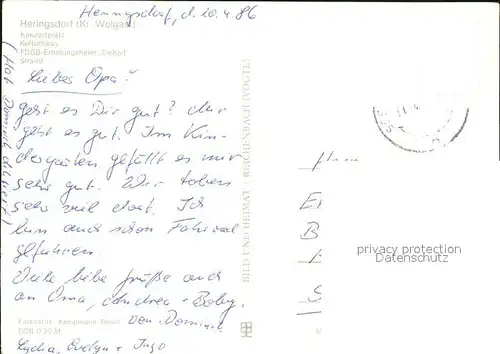 Heringsdorf, d. 20.4.86
Heringsdorf (Kr. Wolgast)
Konzertplatz
Kulturhaus
FDGB-Erholungsheim „Einheit“
Strand
(Hat Dominik diktiert)
Liebes Opa!
geht es Dir gut? Mir
geht es gut. Im Kin-
dergarten gefällt es mir
sehr gut. Wir toben
sehr viel dort. Ich
kann auch schon Fahrrad
gefahren
Viele liebe Grüße auch
an Oma, Andrea +
von Dominik
Lydia, Evelyn + Ingo
Farbfotos: Kampmann, Berlin
DDR 0,20 M
BILD UND HEIMAT · REICHENBACH (VOGTL)
privacy protection
Datenschutz